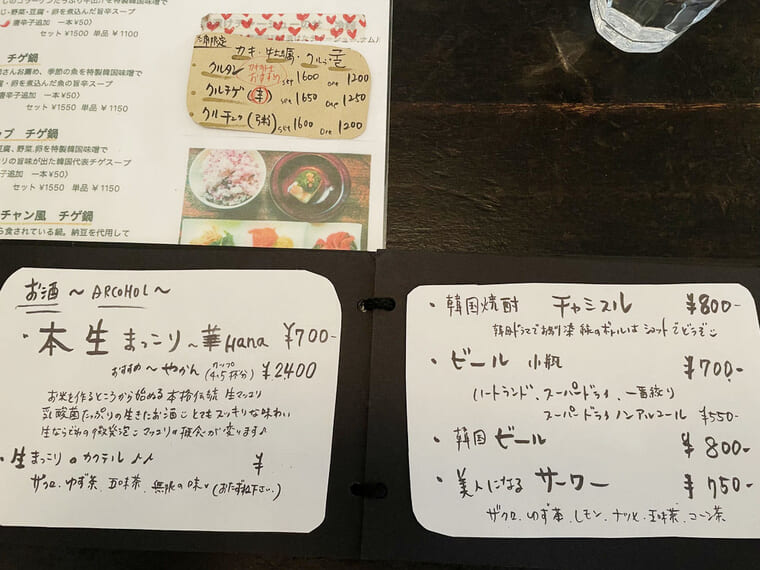 じ・野菜・豆腐・卵を特製韓国味噌で
唐辛子追加 一本¥50）
セット ¥1500 単品 ¥1100
チゲ鍋
さんお薦め、季節の魚を特製韓国味噌で
腐・卵を煮込んだ魚の旨辛スープ
唐辛子追加 一本¥50）
セット ¥1550 単品 ¥1150
チゲ鍋
豆腐、野菜、卵を特製韓国味噌で
りの旨味が出た韓国代表チゲスープ
子追加 一本¥50）
セット ¥1550 単品 ¥1150
チャン風 チゲ鍋
ら食されている鍋。納豆を代用して
限定
カキ・牡蠣・クル
クルタン おすすめ set 1600 one 1200
クルチゲ (辛) set 1650 one 1250
クルチュク (粥) set 1600 one 1200
お酒 ～ ARCOHOL ～
・本生 まっこり～華Hana ¥700-
おすすめ～やかん カップ(4.5杯分) ¥2400
お米を作るところから始める 本格伝統 生マッコリ
乳酸菌たっぷりの生きたお酒 とてもスッキリな味わい
生ならでわの微発泡 マッコリの概念が変ります♪
・生まっこりのカクテル♪♪ ¥
ザクロ、ゆず茶、五味茶、無限の味 (おたずね下さい。)
・韓国焼酎 チャミスル ¥800-
韓国ドラマでお馴染 緑のボトルはショットでどうぞ
・ビール 小瓶 ¥700-
ハートランド、スーパードライ、一番絞り
スーパードライノンアルコール ¥550-
・韓国ビール ¥800-
・美人になる サーワー ¥750-
ザクロ、ゆず茶、レモン、ナツメ、五味茶、コーン茶